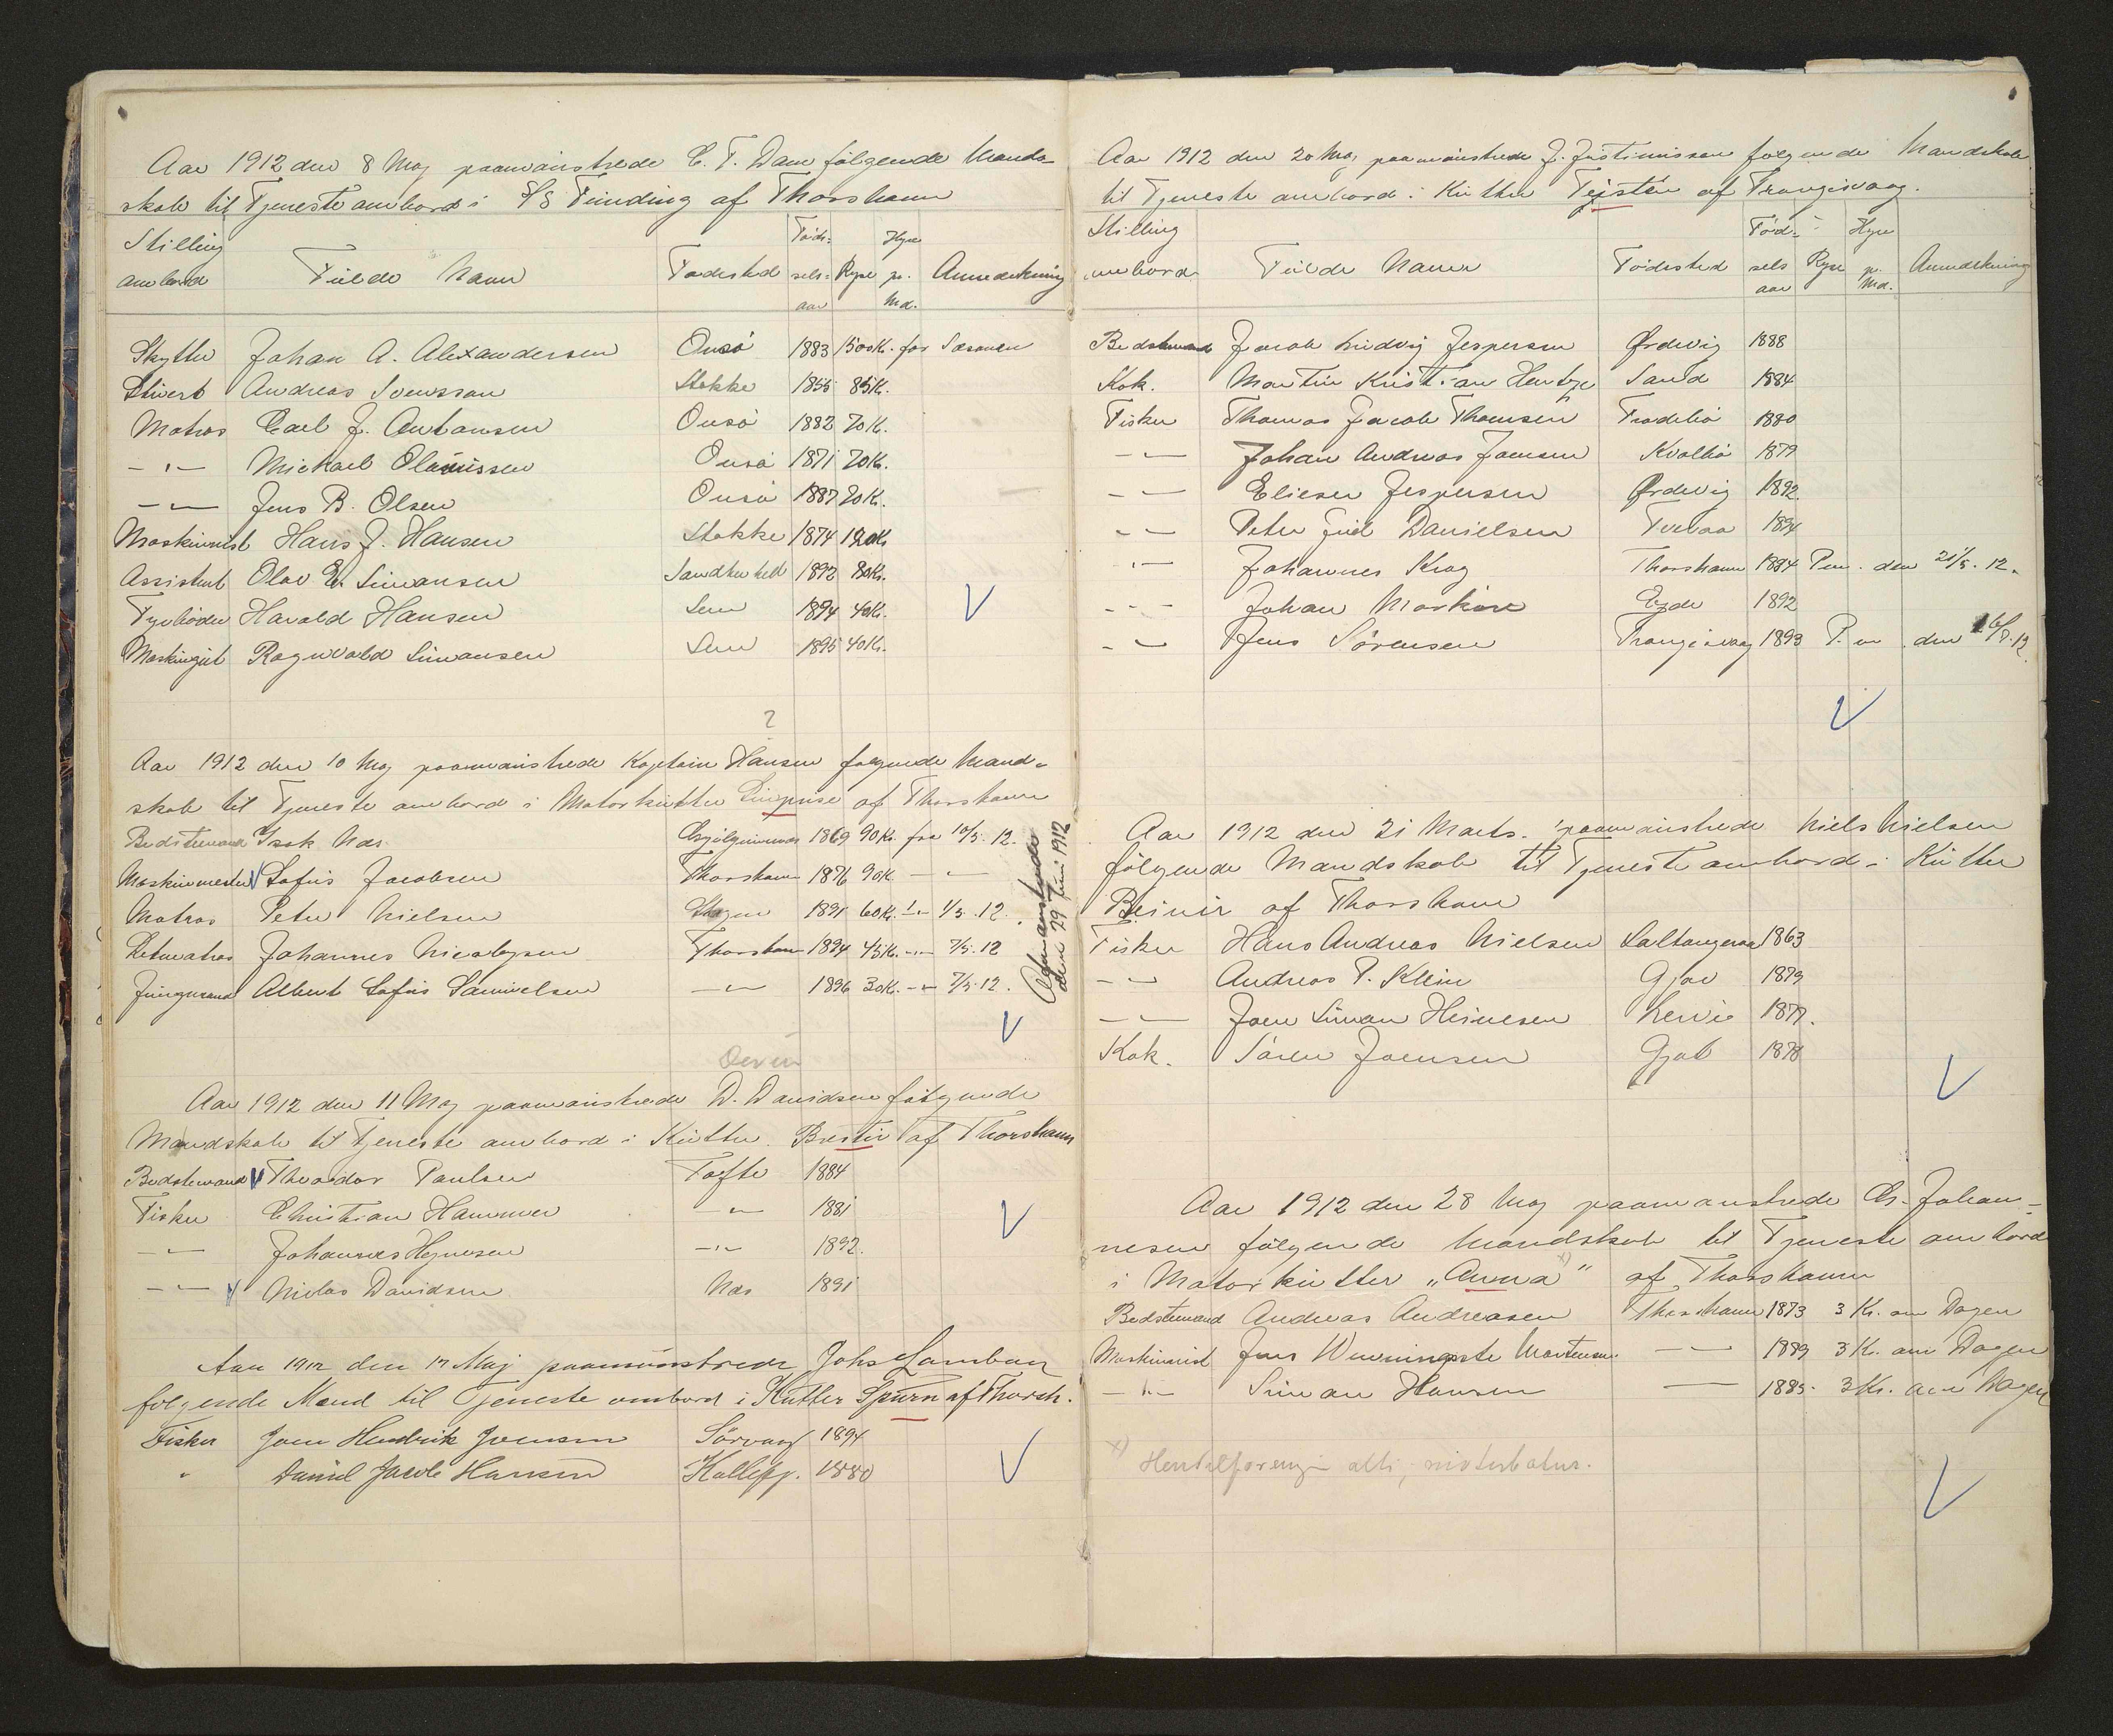 Aar 1912 den 8 Maj paamönstrede C. F. Dam fölgende Mand-
skab til Tjeneste ombord i SS Funding af Thorshavn
Stilling ombord Fulde Navn Födested Föds-sels-aar Rejse Hyre pr. Md. Anmærkning
Skytter Johan A. Alexandersen Onsö 1883 150 K. for Sæsonen
Stivert Andreas Svensson Stokke 1855 85 K.
Matros Carl J. Antonsen Onsö 1882 70 K.
- " - Mickael Olaussen Onsö 1871 70 K.
- " - Jens B. Olsen Onsö 1887 70 K.
Maskinist Hans J. Hansen Stokke 1874 120 K
Assistent Olav E. Simonsen Sandeherred 1892 80 K.
Fyrböder Harald Hansen Sem 1894 40 K.
Maskingut Ragnvald Simonsen Sem 1895 40 K.
?
Aar 1912 den 10 Maj paamönstrede Kaptain Hansen fölgende Mand-
skab til Tjeneste ombord i Motorkutter Surprise af Thorshavn
Bedstemand Isak Næs 1869 90 K. fra 10/5. 12.
Maskinmester Sofus Jacobsen Thorshavn 1876 90 K. - " -
Matros Peter Nielsen Skagen 1891 60 K. - " - 1/5. 12.
Letmatros Johannes Nicolajsen Thorshavn 1894 45 K. - " - 7/5. 12
Jungmand Albert Sofus Samuelsen - " - 1896 30 K. - " - 7/5. 12.
Afmönstrede den 29 Juni 1912
Aar 1912 den 11 Maj paamönstrede D. Davidsen fölgende
Mandskab til Tjeneste ombord i Kutter Brestir af Thorshavn
Bedstemand Theodor Poulsen Tofte 1884
Fisker Christian Hammer - " - 1881
- " - Johannes Hejnesen - " - 1892.
- " - Niclas Davidsen Næs 1891
Aar 1912 den 17 Maj paamönstrede Johs Lamhau
følgende Mænd til Tjeneste ombord i Kutter Spurn af Thorsh.
Fisker Joen Hendrik Joensen Sörvaag 1894
" Daniel Jacob Hansen Kollefj. 1880
Aar 1912 den 20 Maj paamönstrede J. Justinussen følgende Mandskab
til Tjeneste ombord i Kutter Tejsten af Trangisvaag.
Stilling ombord Fulde Navn Födested Föd-sels aar Rejse Hyre p. Md. Anmærkning
Bedstemand Jacob Ludvig Jespersen Ørdevig 1888
Kok. Martin Kristian Hentze Sand 1884
Fisker Thomas Jacob Thomsen Frodebö 1880
- " - Johan Andreas Joensen Kvalbö 1879
- " - Elieser Jespersen Ørdevig 1892.
- " - Peter Juul Danielsen Tveraa 1894
- " - Johannes Krog Thorshavn 1894 Paa m. den 21/5. 12.
- " - Johan Morköre Ejde 1892
- " - Jens Sörensen Trangisvaag 1893 P. m. den 16/8. 12.
Aar 1912 den 21 Marts. paamönstrede Niels Nielsen
fölgende Mandskab til Tjeneste ombord i Kutter
Beinir af Thorshavn
Fisker Hans Andreas Nielsen Saltangeraa 1863
- " - Andreas P. Klein Gjov 1879
- " - Joen Simon Heinesen Lervig 1877.
Kok. Sören Joensen Gjov 1878
Aar 1912 den 28 Maj paamönstrede Chr. Johan-
nesen fölgende Mandskab til Tjeneste ombord
i Motorkutter "Anna" x) af Thorshavn
Bedstemand Andreas Andreasen Thorshavn 1873 3 Kr. om Dagen
Maskinist Jens Wenningste Mortensen - " - 1889 3 K. om Dagen
- " - Simon Hansen - " - 1885. 3 Kr. om Dagen
x)